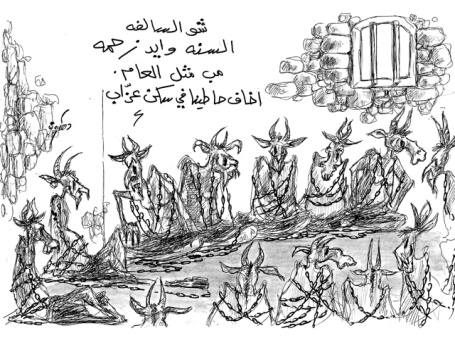 شو السالفه
السنه وايد زحمه
مب مثل العام .
اخاف حاطينا في سكن عزّاب
؟